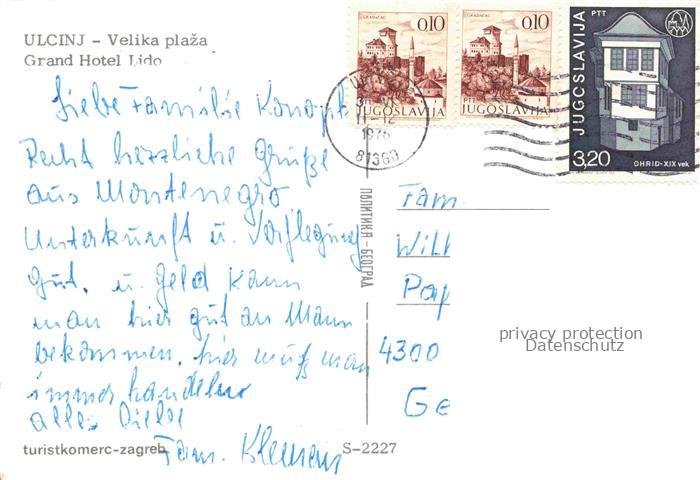 ULCINJ – Velika plaža
Grand Hotel Lido
Liebe Familie
Recht herzliche Grüße
aus Montenegro
Unterkunft u. Verflegung
gut, u. Geld kann
man hier gut an Mann
bekommen, hier muß man
immer handeln
alles Liebe
Fam. Klemens
turistkomerc-zagreb
S-2227
ПОЛИТИКА – БЕОГРАД
GRADAČAC
0,10
PTT
JUGOSLAVIJA
GRADAČAC
0,10
PTT
JUGOSLAVIJA
PTT
JUGOSLAVIJA
3,20
OHRID-XIX vek
1976
81363
Fam.
Will
Pap
4300
Ge
privacy protection
Datenschutz